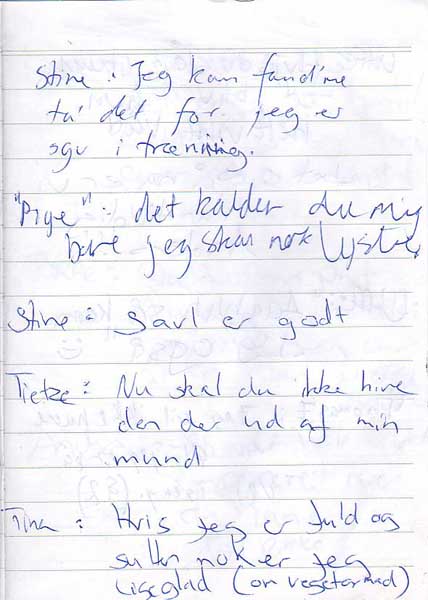 Stine : Jeg kan fand'me
ta' det for jeg er
sgu i træning.
"Pige" : det kalder du mig
bare jeg skal nok lyste
Stine : Savl er godt
Tietze : Nu skal du ikke hive
den der ud af min
mund
Tina : Hvis jeg er fuld og
sulten nok er jeg
ligeglad (om vegetarmad)